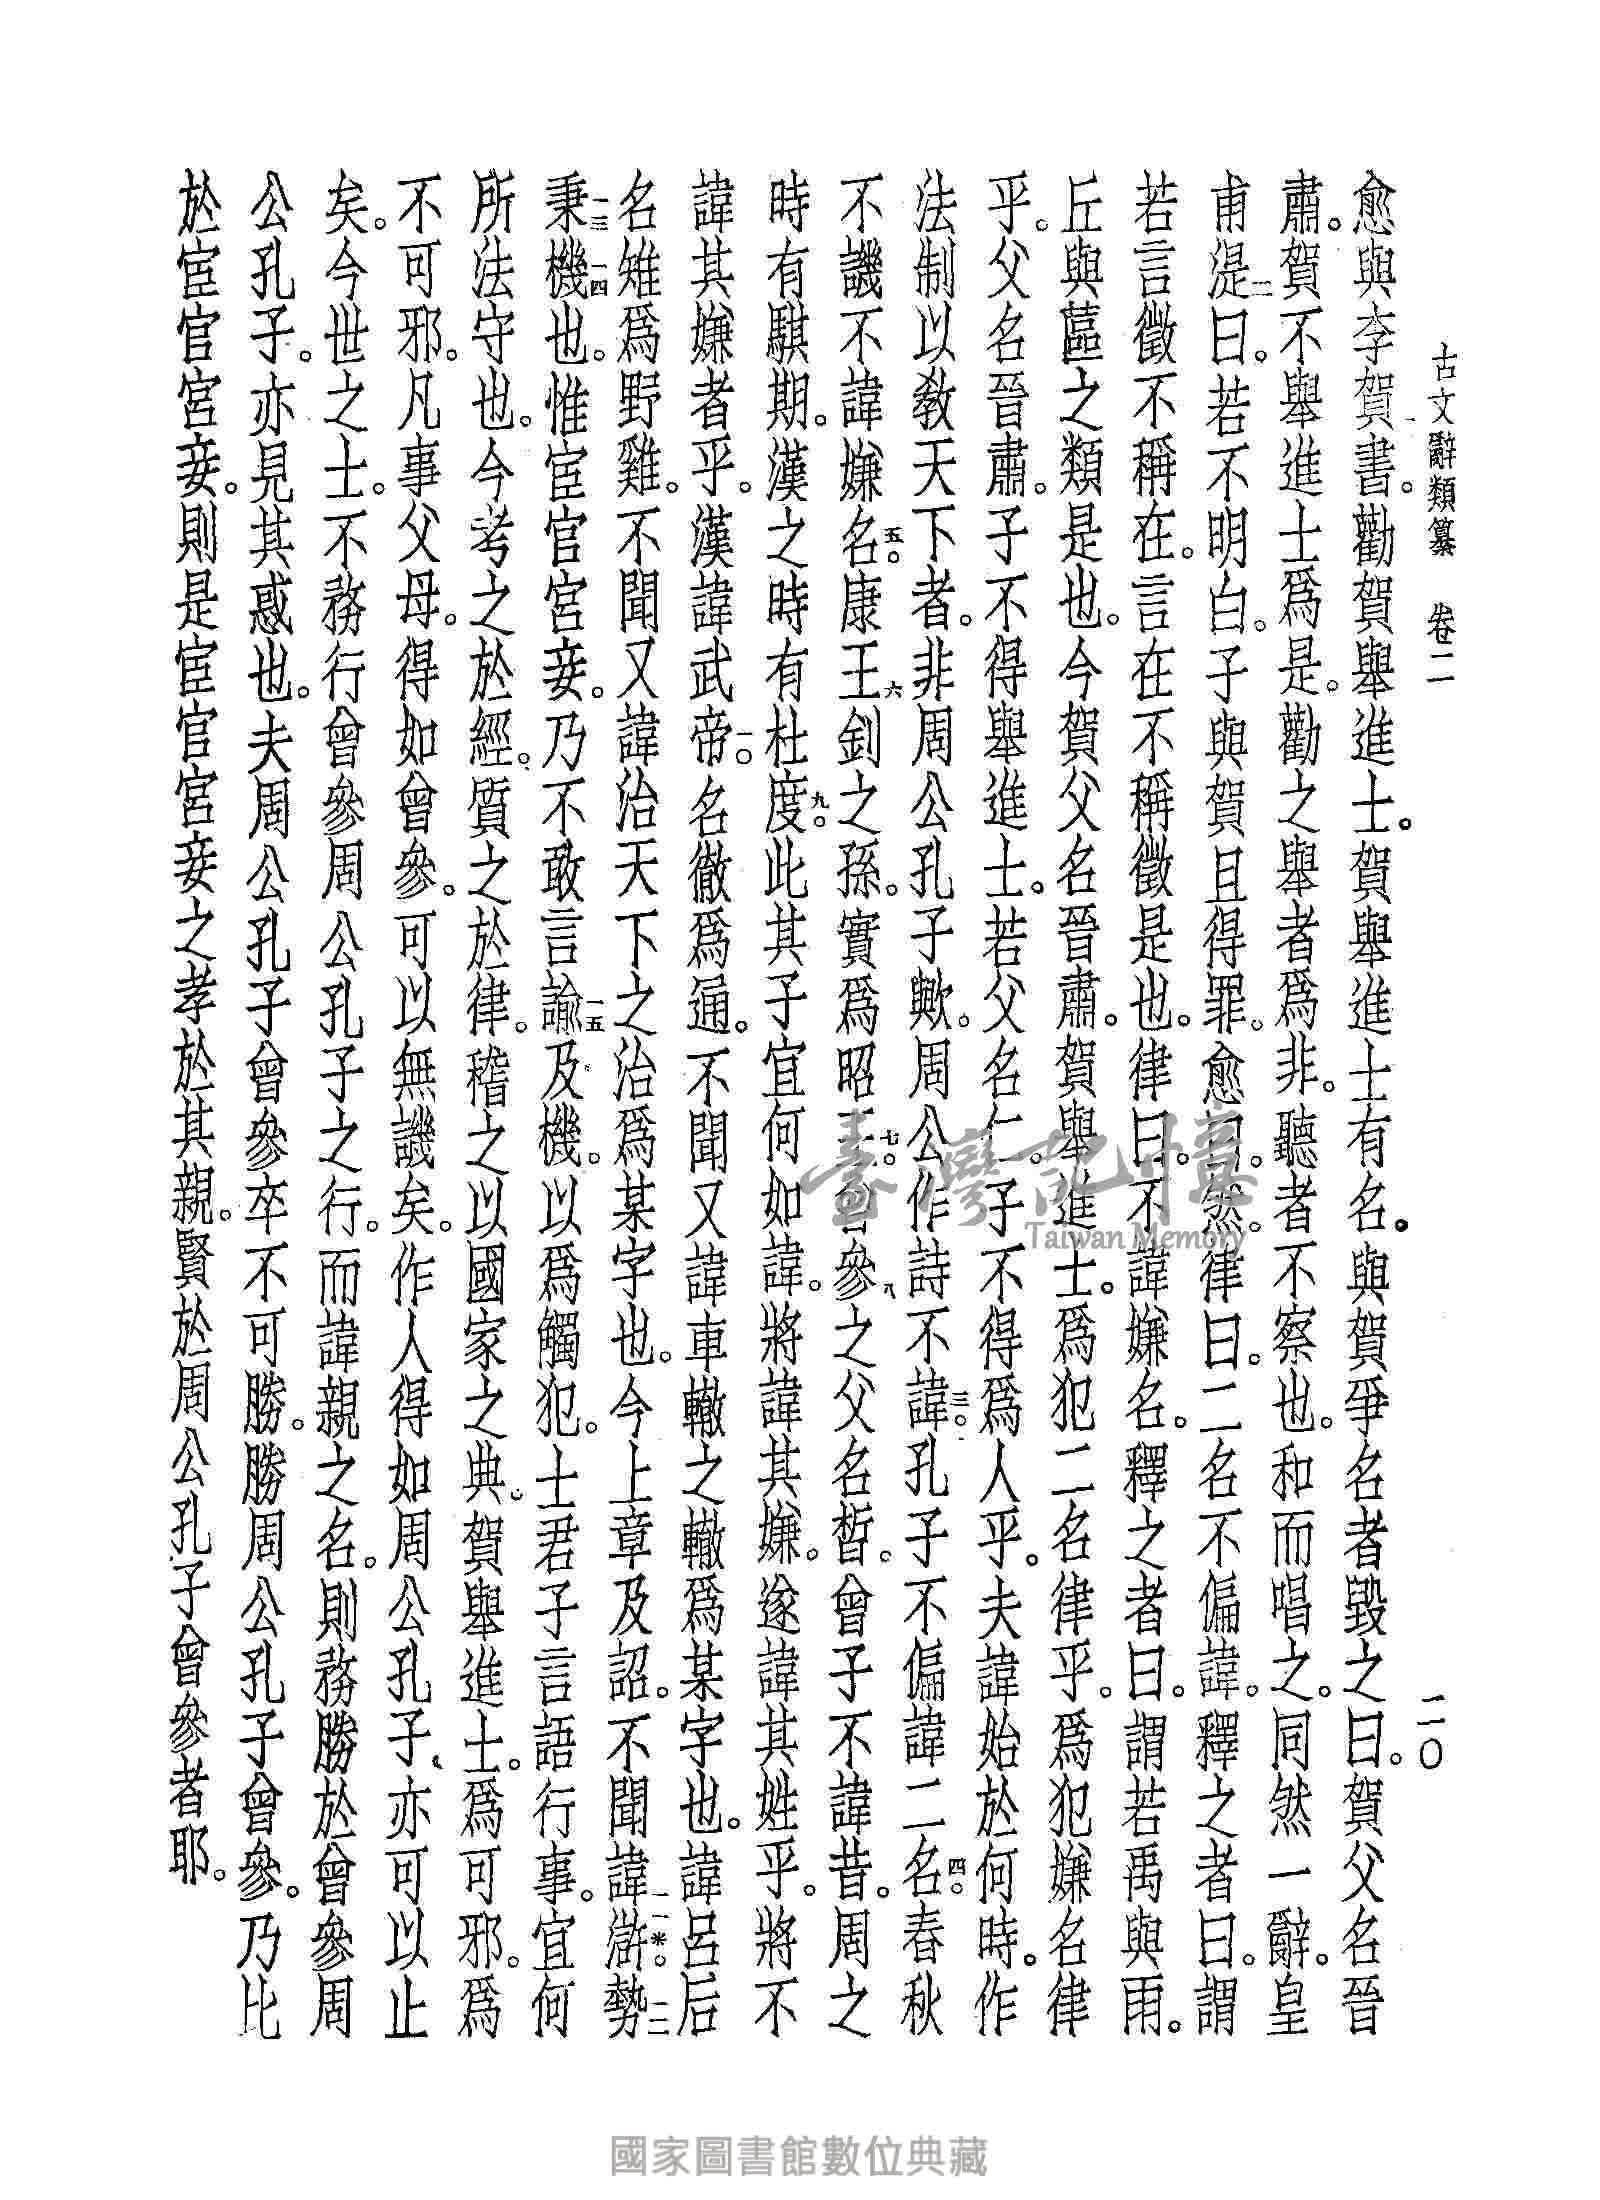 古文辭類纂　卷二　二〇
愈與李賀一書。勸賀舉進士。賀舉進士有名。與賀爭名者毀之曰。賀父名晉
肅。賀不舉進士爲是。勸之舉者爲非。聽者不察也。和而唱之。同然一辭。皇
甫湜二曰。若不明白。子與賀且得罪。愈曰。然。律曰。二名不偏諱。釋之者曰。謂
若言徵不稱在。言在不稱徵是也。律曰。不諱嫌名。釋之者曰。謂若禹與雨。
丘與蓲之類是也。今賀父名晉肅。賀舉進士。爲犯二名律乎。爲犯嫌名律
乎。父名晉肅。子不得舉進士。若父名仁。子不得爲人乎。夫諱始於何時。作
法制以敎天下者。非周公孔子歟。周公作詩不諱三。孔子不偏諱二名四。春秋
不譏不諱嫌名五。康王六釗之孫。實爲昭王七。曾參八之父名晳。曾子不諱昔。周之
時有騏期。漢之時有杜度九。此其子宜何如諱。將諱其嫌。遂諱其姓乎。將不
諱其嫌者乎。漢諱武帝一〇名徹爲通。不聞又諱車轍之轍爲某字也。諱呂后
名雉爲野雞。不聞又諱治天下之治爲某字也。今上章及詔。不聞諱滸一一※。勢一二
秉一三機一四也。惟宦官宮妾。乃不敢言諭一五及機。以爲觸犯。士君子言語行事。宜何
所法守也。今考之於經。質之於律。稽之以國家之典。賀舉進士。爲可邪。爲
不可邪。凡事父母。得如曾參。可以無譏矣。作人得如周公孔子。亦可以止
矣。今世之士。不務行曾參周公孔子之行。而諱親之名。則務勝於曾參周
公孔子。亦見其惑也。夫周公孔子曾參卒不可勝。勝周公孔子曾參。乃比
於宦官宮妾。則是宦官宮妾之孝於其親。賢於周公孔子曾參者耶。
臺灣記憶
Taiwan Memory
國家圖書館數位典藏